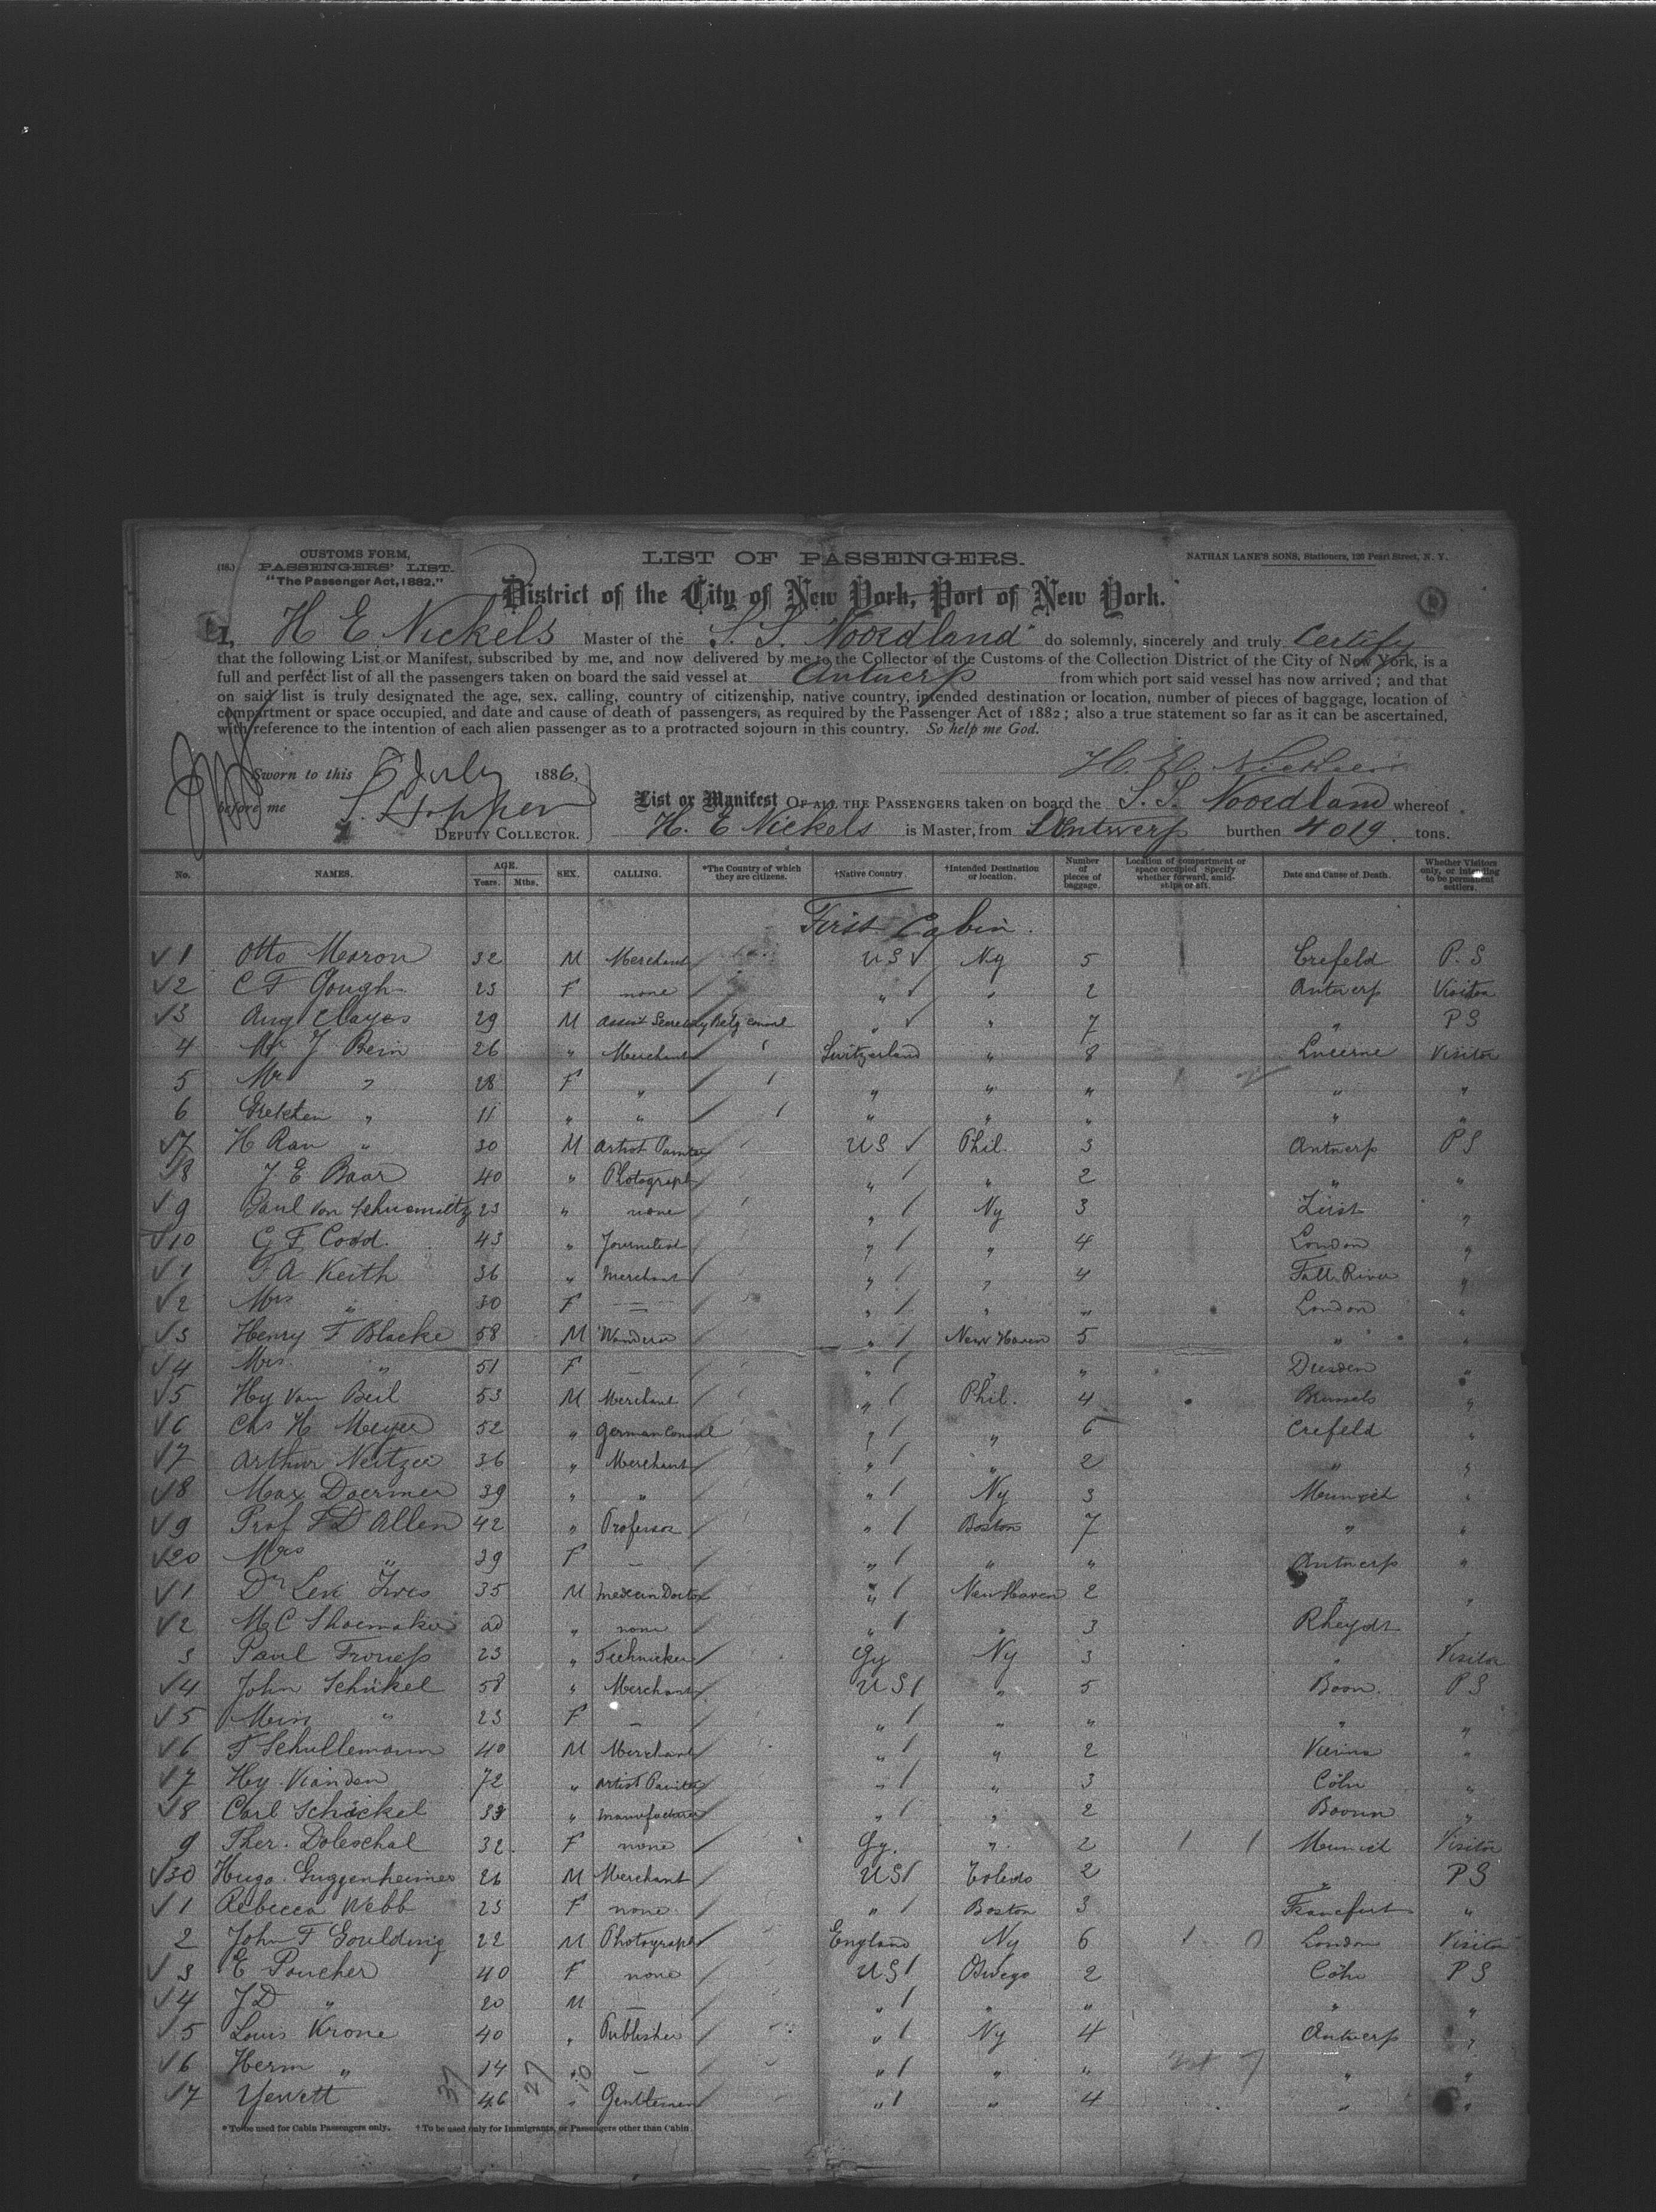 CUSTOMS FORM,
PASSENGERS' LIST.
"The Passenger Act, 1882."
LIST OF PASSENGERS.
NATHAN LANE'S SONS, Stationers, 120 Pearl Street, N. Y.
District of the City of New York, Port of New York.
I, H E Nickels Master of the S. S. Noordland do solemnly, sincerely and truly Certify
that the following List or Manifest, subscribed by me, and now delivered by me to the Collector of the Customs of the Collection District of the City of New York, is a
full and perfect list of all the passengers taken on board the said vessel at Antwerp from which port said vessel has now arrived; and that
on said list is truly designated the age, sex, calling, country of citizenship, native country, intended destination or location, number of pieces of baggage, location of
compartment or space occupied, and date and cause of death of passengers, as required by the Passenger Act of 1882; also a true statement so far as it can be ascertained,
with reference to the intention of each alien passenger as to a protracted sojourn in this country. So help me God.
Sworn to this 6 July 1886,
before me S. Hopper
DEPUTY COLLECTOR.
List or Manifest OF ALL THE PASSENGERS taken on board the S. S. Noordland whereof
H. E Nickels is Master, from Antwerp burthen 4019 tons.
No. NAMES. AGE. Years. Mths. SEX. CALLING. *The Country of which they are citizens. †Native Country. †Intended Destination or location. Number of pieces of baggage. Location of compartment or space occupied Specify whether forward, amidships or aft. Date and Cause of Death. Whether Visitors only, or intending to be permanent settlers.
First Cabin.
1 Otto Maron 32 M Merchant US Ny 5 Crefeld P. S
2 C F Gough 23 F none " " 2 Antwerp Visitor
3 Aug Clayes 29 M Assist Secretary Belg consul " " 7 " P S
4 Mr J Bein 26 " Merchant Switzerland " 8 Lucerne Visitor
5 Mrs " 28 F " " " " " "
6 Gretchen " 11 " " " " " " "
7 H Rau " 30 M Artist Painter US Phil. 3 Antwerp P S
8 J E Baar 40 " Photograph " " 2 " "
9 Paul von 23 " none " Ny 3 "
10 G F Codd. 43 " Journalist " " 4 London "
1 F A Keith 36 " Merchant " " 4 Fall River "
2 Mrs " 30 F — " " " London "
3 Henry F Blacke 58 M " New Haven 5 " "
4 Mrs " 51 F — " " " Dresden "
5 Hy van Beil 53 M Merchant " Phil. 4 Brussels "
6 Chs H Meyer 52 " German Consul " " 6 Crefeld "
7 Arthur Neitzer 36 " Merchant " " 2 " "
8 Max Doermer 39 " " " Ny 3 Munich "
9 Prof F D Allen 42 " Professor " Boston 7 " "
20 Mrs " 39 F — " " " Antwerp "
1 Dr Levi Ives 35 M Doctor " New Haven 2 " "
2 M C Shoemaker 20 " none " " 3 Rheydt "
3 Paul 23 " Technicker Gy Ny 3 " Visitor
4 John Schickel 58 " Merchant US " 5 Boon. P S
5 " 23 F — " " " " "
6 F Schullemann 40 M Merchant " " 2 Vienna "
7 Hy Vianden 72 " Artist Painter " " 3 Cöln "
8 Carl Schickel 33 " manufacturer " " 2 Boonn "
9 Ther. Doleschal 32 F none Gy. " 2 Munich Visitor
30 Hugo Guggenheimer 26 M Merchant US Toledo 2 " P S
1 Rebecca Webb 23 F none " Boston 3 Francfurt "
2 John F Goulding 22 M Photograph England Ny 6 London Visitor
3 E Poucher 40 F none US Oswego 2 Cöln P S
4 J D " 20 M — " " " " "
5 Louis Krone 40 " Publisher " Ny 4 Antwerp "
6 Herm " 14 " — " " " " "
7 Yewett 46 " Gentleman " " 4 " "
37 27 10
*To be used for Cabin Passengers only. †To be used only for Immigrants, or Passengers other than Cabin